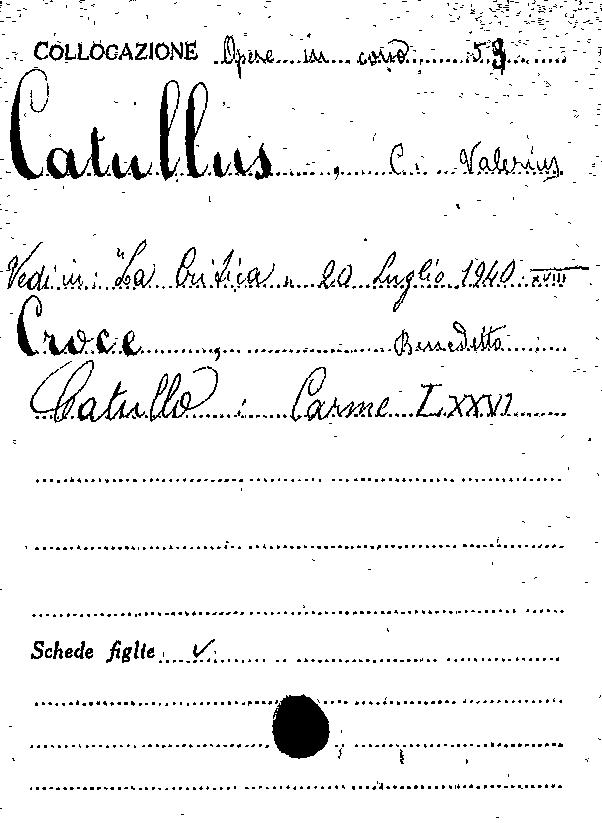 COLLOCAZIONE Opere in corso 53
Catullus, C. Valerius
Vedi in: "La Critica" 20 Luglio 1940 XVIII
Croce, Benedetto
Catullo: Carme LXXVI
Schede figlie ✓